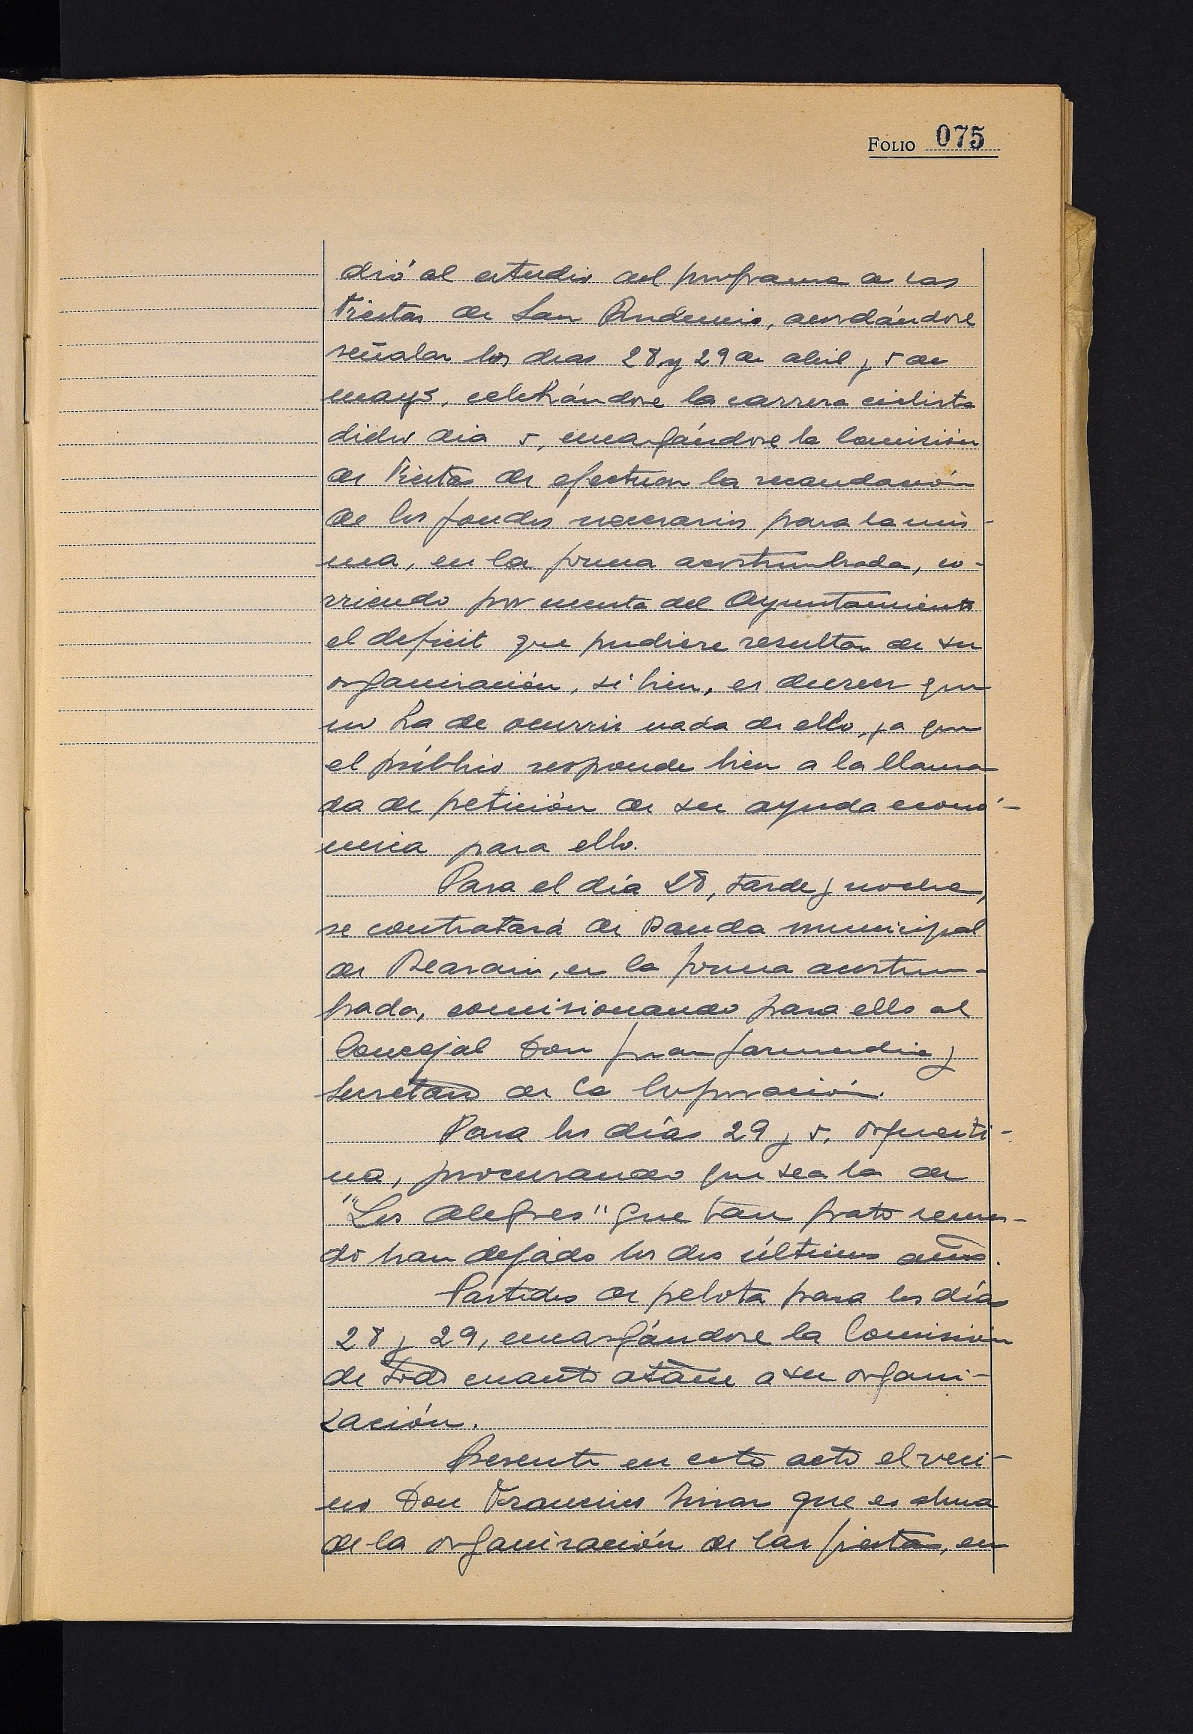 FOLIO 075
dió al estudio del programa de las
Fiestas de San Prudencio, acordándose
señalar los dias 28 y 29 de abril y 5 de
mayo, celebrándose la carrera ciclista
dicho dia 5, encargándose la Comisión
de Fiestas de efectuar la recaudación
de los fondos necesarios para la mis-
ma, en la forma acostumbrada, co-
rriendo por cuenta del Ayuntamiento
el deficit que pudiere resultar de su
organización, si bien, es de creer que
no ha de ocurrir nada de ello, ya que
el público responde bien a la llama
da de petición de su ayuda econó-
mica para ello.
Para el día 28, tarde y noche,
se contratará de Banda municipal
de Beasain, en la forma acostum-
brada, comisionando para ello al
Concejal Don Juan Jarmendia y
Secretario de la Corporación.
Para los días 29 y 5, orquesti-
na, procurando que sea la de
"Los Alegres" que tan grato recuer-
do han dejado los dos últimos años.
Partidos de pelota para los días
28 y 29, encargándose la Comisión
de todo cuanto atañe a su organi-
zación.
Presente en este acto el veci-
no Don Francisco que es alma
de la organización de las fiestas, en